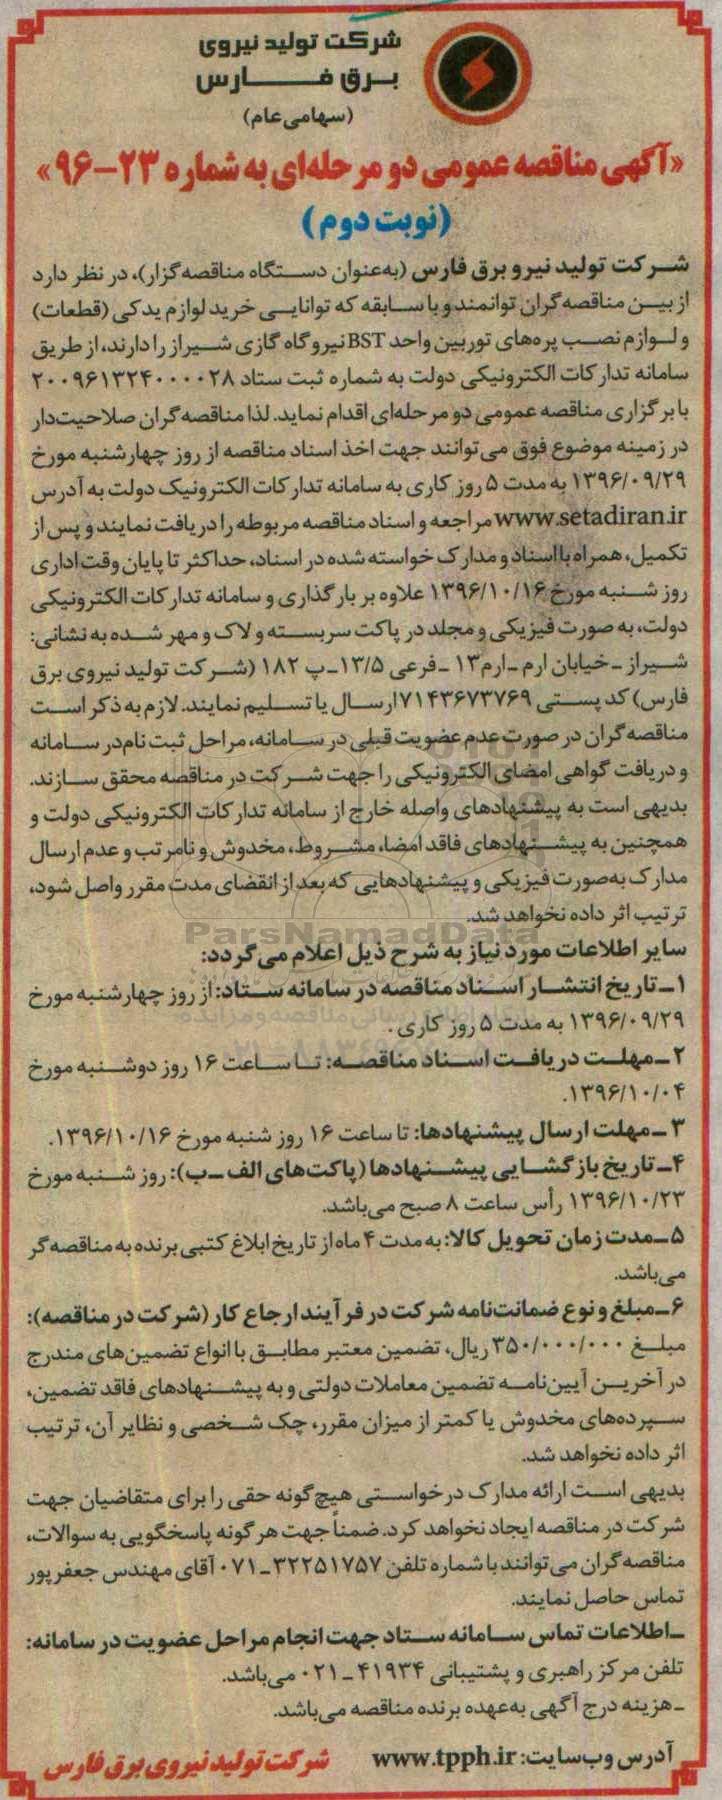 شرکت تولید نیروی
برق فارس
(سهامی عام)
«آگهی مناقصه عمومی دو مرحله‌ای به شماره ۲۳-۹۶»
(نوبت دوم)
شرکت تولید نیرو برق فارس (به‌عنوان دستگاه مناقصه‌گزار)، در نظر دارد
از بین مناقصه‌گران توانمند و با سابقه که توانایی خرید لوازم یدکی (قطعات)
و لوازم نصب پره‌های توربین واحد BST نیروگاه گازی شیراز را دارند، از طریق
سامانه تدارکات الکترونیکی دولت به شماره ثبت ستاد ۲۰۰۹۶۱۳۲۴۰۰۰۰۲۸
با برگزاری مناقصه عمومی دو مرحله‌ای اقدام نماید. لذا مناقصه‌گران صلاحیت‌دار
در زمینه موضوع فوق می‌توانند جهت اخذ اسناد مناقصه از روز چهارشنبه مورخ
۱۳۹۶/۰۹/۲۹ به مدت ۵ روز کاری به سامانه تدارکات الکترونیک دولت به آدرس
www.setadiran.ir مراجعه و اسناد مناقصه مربوطه را دریافت نمایند و پس از
تکمیل، همراه با اسناد و مدارک خواسته شده در اسناد، حداکثر تا پایان وقت اداری
روز شنبه مورخ ۱۳۹۶/۱۰/۱۶ علاوه بر بارگذاری و سامانه تدارکات الکترونیکی
دولت، به صورت فیزیکی و مجلد در پاکت سربسته و لاک و مهر شده به نشانی:
شیراز ـ خیابان ارم ـ ارم ۱۳ ـ فرعی ۱۳/۵ ـ پ ۱۸۲ (شرکت تولید نیروی برق
فارس) کد پستی ۷۱۴۳۶۷۳۷۶۹ ارسال یا تسلیم نمایند. لازم به ذکر است
مناقصه‌گران در صورت عدم عضویت قبلی در سامانه، مراحل ثبت نام در سامانه
و دریافت گواهی امضای الکترونیکی را جهت شرکت در مناقصه محقق سازند.
بدیهی است به پیشنهادهای واصله خارج از سامانه تدارکات الکترونیکی دولت و
همچنین به پیشنهادهای فاقد امضا، مشروط، مخدوش و نامرتب و عدم ارسال
مدارک به‌صورت فیزیکی و پیشنهادهایی که بعد از انقضای مدت مقرر واصل شود،
ترتیب اثر داده نخواهد شد.
ParsNamadData
سایر اطلاعات مورد نیاز به شرح ذیل اعلام می‌گردد:
۱ـ تاریخ انتشار اسناد مناقصه در سامانه ستاد: از روز چهارشنبه مورخ
۱۳۹۶/۰۹/۲۹ به مدت ۵ روز کاری.
۲ـ مهلت دریافت اسناد مناقصه: تا ساعت ۱۶ روز دوشنبه مورخ
۱۳۹۶/۱۰/۰۴.
۳ـ مهلت ارسال پیشنهادها: تا ساعت ۱۶ روز شنبه مورخ ۱۳۹۶/۱۰/۱۶.
۴ـ تاریخ بازگشایی پیشنهادها (پاکت‌های الف ـ ب): روز شنبه مورخ
۱۳۹۶/۱۰/۲۳ رأس ساعت ۸ صبح می‌باشد.
۵ـ مدت زمان تحویل کالا: به مدت ۴ ماه از تاریخ ابلاغ کتبی برنده به مناقصه‌گر
می‌باشد.
۶ـ مبلغ و نوع ضمانت‌نامه شرکت در فرآیند ارجاع کار (شرکت در مناقصه):
مبلغ ۳۵۰/۰۰۰/۰۰۰ ریال، تضمین معتبر مطابق با انواع تضمین‌های مندرج
در آخرین آیین‌نامه تضمین معاملات دولتی و به پیشنهادهای فاقد تضمین،
سپرده‌های مخدوش یا کمتر از میزان مقرر، چک شخصی و نظایر آن، ترتیب
اثر داده نخواهد شد.
بدیهی است ارائه مدارک درخواستی هیچ‌گونه حقی را برای متقاضیان جهت
شرکت در مناقصه ایجاد نخواهد کرد. ضمناً جهت هرگونه پاسخگویی به سوالات،
مناقصه‌گران می‌توانند با شماره تلفن ۳۲۲۵۱۷۵۷ـ۰۷۱ آقای مهندس جعفرپور
تماس حاصل نمایند.
ـ اطلاعات تماس سامانه ستاد جهت انجام مراحل عضویت در سامانه:
تلفن مرکز راهبری و پشتیبانی ۴۱۹۳۴ـ۰۲۱ می‌باشد.
ـ هزینه درج آگهی به‌عهده برنده مناقصه می‌باشد.
آدرس وب‌سایت: www.tpph.ir شرکت تولید نیروی برق فارس